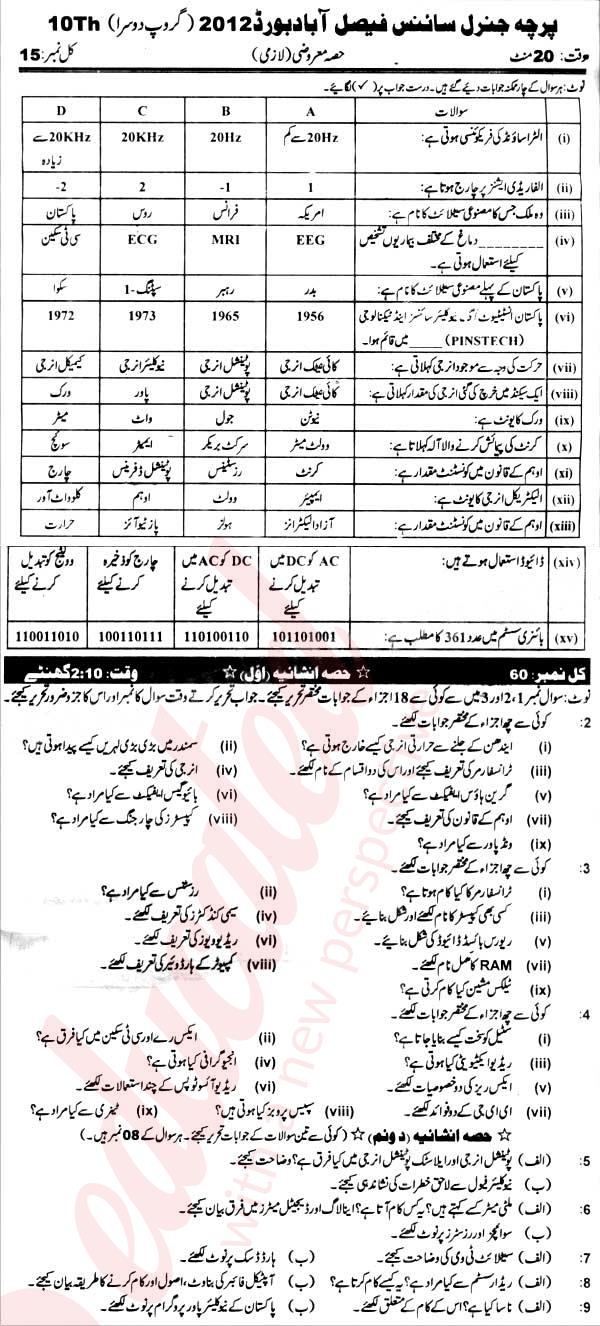 پرچہ جنرل سائنس فیصل آباد بورڈ 2012 (گروپ دوسرا) 10Th
وقت: 20 منٹ حصہ معروضی (لازمی) کل نمبر: 15
نوٹ: ہر سوال کے چار ممکنہ جوابات دیئے گئے ہیں۔ درست جواب پر (✓) لگائیے۔
سوالات A B C D
(i) الٹرا ساؤنڈ کی فریکوئنسی ہوتی ہے: 20Hz سے کم 20Hz 20KHz 20KHz سے زیادہ
(ii) الفا ریڈی ایشنز پر چارج ہوتا ہے: 1 -1 2 -2
(iii) وہ ملک جس کا مصنوعی سیٹلائٹ کا نام ہے: امریکہ فرانس روس پاکستان
(iv) ________ دماغ کے مختلف بیماریوں تشخیص کیلئے استعمال ہوتی ہے۔ EEG MRI ECG سی ٹی سکین
(v) پاکستان کے پہلے مصنوعی سیٹلائٹ کا نام ہے: بدر رہبر سپٹنگ-1 سکوا
(vi) پاکستان انسٹیٹیوٹ آف نیوکلیئر سائنسز اینڈ ٹیکنالوجی (PINSTECH) ____ میں قائم ہوا۔ 1956 1965 1973 1972
(vii) حرکت کی وجہ سے موجود انرجی کہلاتی ہے: کائی نیٹک انرجی پوٹینشل انرجی نیوکلیئر انرجی کیمیکل انرجی
(viii) ایک سیکنڈ میں خرچ کی گئی انرجی کی مقدار کہلاتی ہے: کائی نیٹک انرجی پوٹینشل انرجی پاور ورک
(ix) ورک کا یونٹ ہے: نیوٹن جول واٹ میٹر
(x) کرنٹ کی پیمائش کرنے والا آلہ کہلاتا ہے: وولٹ میٹر سرکٹ بریکر ایمیٹر سوئچ
(xi) اوہم کے قانون میں کونسٹنٹ مقدار ہے: کرنٹ رزسٹنس پوٹینشل ڈفرینس چارج
(xii) الیکٹریکل انرجی کا یونٹ ہے: ایمپیئر وولٹ اوہم کلوواٹ آور
(xiii) اوہم کے قانون میں کونسٹنٹ مقدار ہے: آزاد الیکٹرانز ہولز پازیٹو آئنز حرارت
(xiv) ڈائیوڈ استعمال ہوتے ہیں: AC کو DC میں تبدیل کرنے کیلئے DC کو AC میں تبدیل کرنے کیلئے چارج کو ذخیرہ کرنے کیلئے وولٹیج کو تبدیل کرنے کیلئے
(xv) بائنری سسٹم میں عدد 361 کا مطلب ہے: 101101001 110100110 100110111 110011010
کل نمبر: 60 ☆ حصہ انشائیہ (اوّل) ☆ وقت: 2:10 گھنٹے
نوٹ: سوال نمبر 1، 2 اور 3 میں سے کوئی سے 18 اجزاء کے جوابات مختصر تحریر کیجئے۔ جواب تحریر کرتے وقت سوال کا نمبر اور اس کا جز و ضرور تحریر کیجئے۔
2: کوئی سے چھ اجزاء کے مختصر جوابات لکھئے۔
(i) ایندھن کے جلنے سے حرارتی انرجی کیسے خارج ہوتی ہے؟ (ii) سمندر میں بڑی بڑی لہریں کیسے پیدا ہوتی ہیں؟
(iii) ٹرانسفارمر کی تعریف کیجئے اور اس کی دو اقسام کے نام لکھئے۔ (iv) انرجی کی تعریف کیجئے۔
(v) گرین ہاؤس ایفیکٹ سے کیا مراد ہے؟ (vi) بائیو گیس ایفیکٹ سے کیا مراد ہے؟
(vii) اوہم کے قانون کی تعریف کیجئے۔ (viii) کپیسٹرز کی چارجنگ سے کیا مراد ہے؟
(ix) ونڈ پاور سے کیا مراد ہے؟
3: کوئی سے چھ اجزاء کے مختصر جوابات لکھئے۔
(i) ٹرانسفارمر کا کیا کام ہوتا ہے؟ (ii) رزسٹنس سے کیا مراد ہے؟
(iii) کسی بھی کپیسٹر کا نام لکھئے اور شکل بنائیے۔ (iv) سیمی کنڈکٹرز کی تعریف لکھئے۔
(v) ریورس بائسڈ ڈائیوڈ کی شکل بنائیے۔ (vi) ریڈیو ویوز کی تعریف لکھئے۔
(vii) RAM کا مکمل نام لکھئے۔ (viii) کمپیوٹر کے ہارڈ ویئر کی تعریف لکھئے۔
(ix) ٹیلکس مشین کیا کام کرتی ہے؟
4: کوئی سے چھ اجزاء کے مختصر جوابات لکھئے۔
(i) سٹیل کو سخت کیسے بنایا جاتا ہے؟ (ii) ایکس رے اور سی ٹی سکین میں کیا فرق ہے؟
(iii) ریڈیو ایکٹیویٹی کیا ہوتی ہے؟ (iv) انجیوگرافی کیا ہوتی ہے؟
(v) ایکس ریز کی دو خصوصیات لکھئے۔ (vi) ریڈیو آئسوٹوپس کے چند استعمالات لکھئے۔
(vii) ای ای جی کے دو فوائد لکھئے۔ (viii) سپیس پروبز کیا ہوتی ہیں؟ (ix) ٹینری سے کیا مراد ہے؟
☆ حصہ انشائیہ (دوئم) ☆ (کوئی سے تین سوالات کے جوابات تحریر کیجئے۔ ہر سوال کے 08 نمبر ہیں۔)
5: (الف) پوٹینشل انرجی اور ایلاسٹک پوٹینشل انرجی میں کیا فرق ہے؟ وضاحت کیجئے۔
(ب) نیوکلیئر فیول سے لاحق خطرات کی نشاندہی کیجئے۔
6: (الف) ملٹی میٹر کسے کہتے ہیں؟ یہ کس کام آتا ہے؟ اینالاگ اور ڈیجیٹل میٹرز میں فرق بیان کیجئے۔
(ب) سوئچز اور رزسٹرز پر نوٹ لکھئے۔
7: (الف) سیٹلائٹ ٹی وی کی وضاحت کیجئے۔ (ب) ہارڈ ڈسک پر نوٹ لکھئے۔
8: (الف) ریڈار سسٹم سے کیا مراد ہے؟ یہ کیسے کام کرتا ہے؟ (ب) آپٹیکل فائبر کی بناوٹ، اصول اور کام کرنے کا طریقہ بیان کیجئے۔
9: (الف) ناسا کیا ہے؟ اس کے کام کے متعلق لکھئے۔ (ب) پاکستان کے نیوکلیئر پاور پروگرام پر نوٹ لکھئے۔